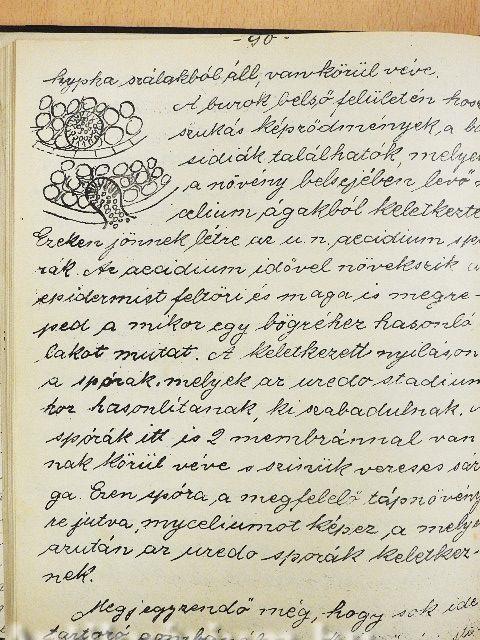 - 90 -
hypha szálakból áll, van körül véve.
A burok belső felületén hosz
szukás képződmények, a ba
sidiák találhatók, melyek
a növény belsejében levő
celium ágakból keletkezte
Ezeken jönnek létre az u.n. aecidium spó
rák. Az aecidium idővel növekszik
epidermist feltöri és maga is megre-
ped, a mikor egy bögréhez hasonló
lakot mutat. A keletkezett nyiláson
a spórák, melyek az uredo stadium
hoz hasonlítanak, ki szabadulnak.
spórák itt is 2 membránnal van
nak körül véve s szinük vereses sár
ga. Ezen spóra, a megfelelő tápnövény
re jutva, myceliumot képez, a mely
azután az uredo sporák keletkez-
nek.
Megjegyzendő még, hogy sok ide
tartozó